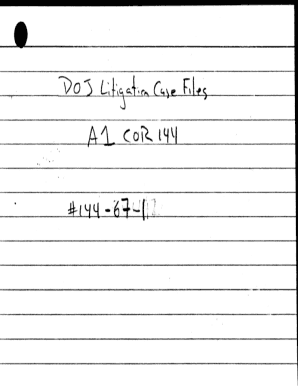 DOJ Litigation Case Files
A1 COR 144
#144-67-1